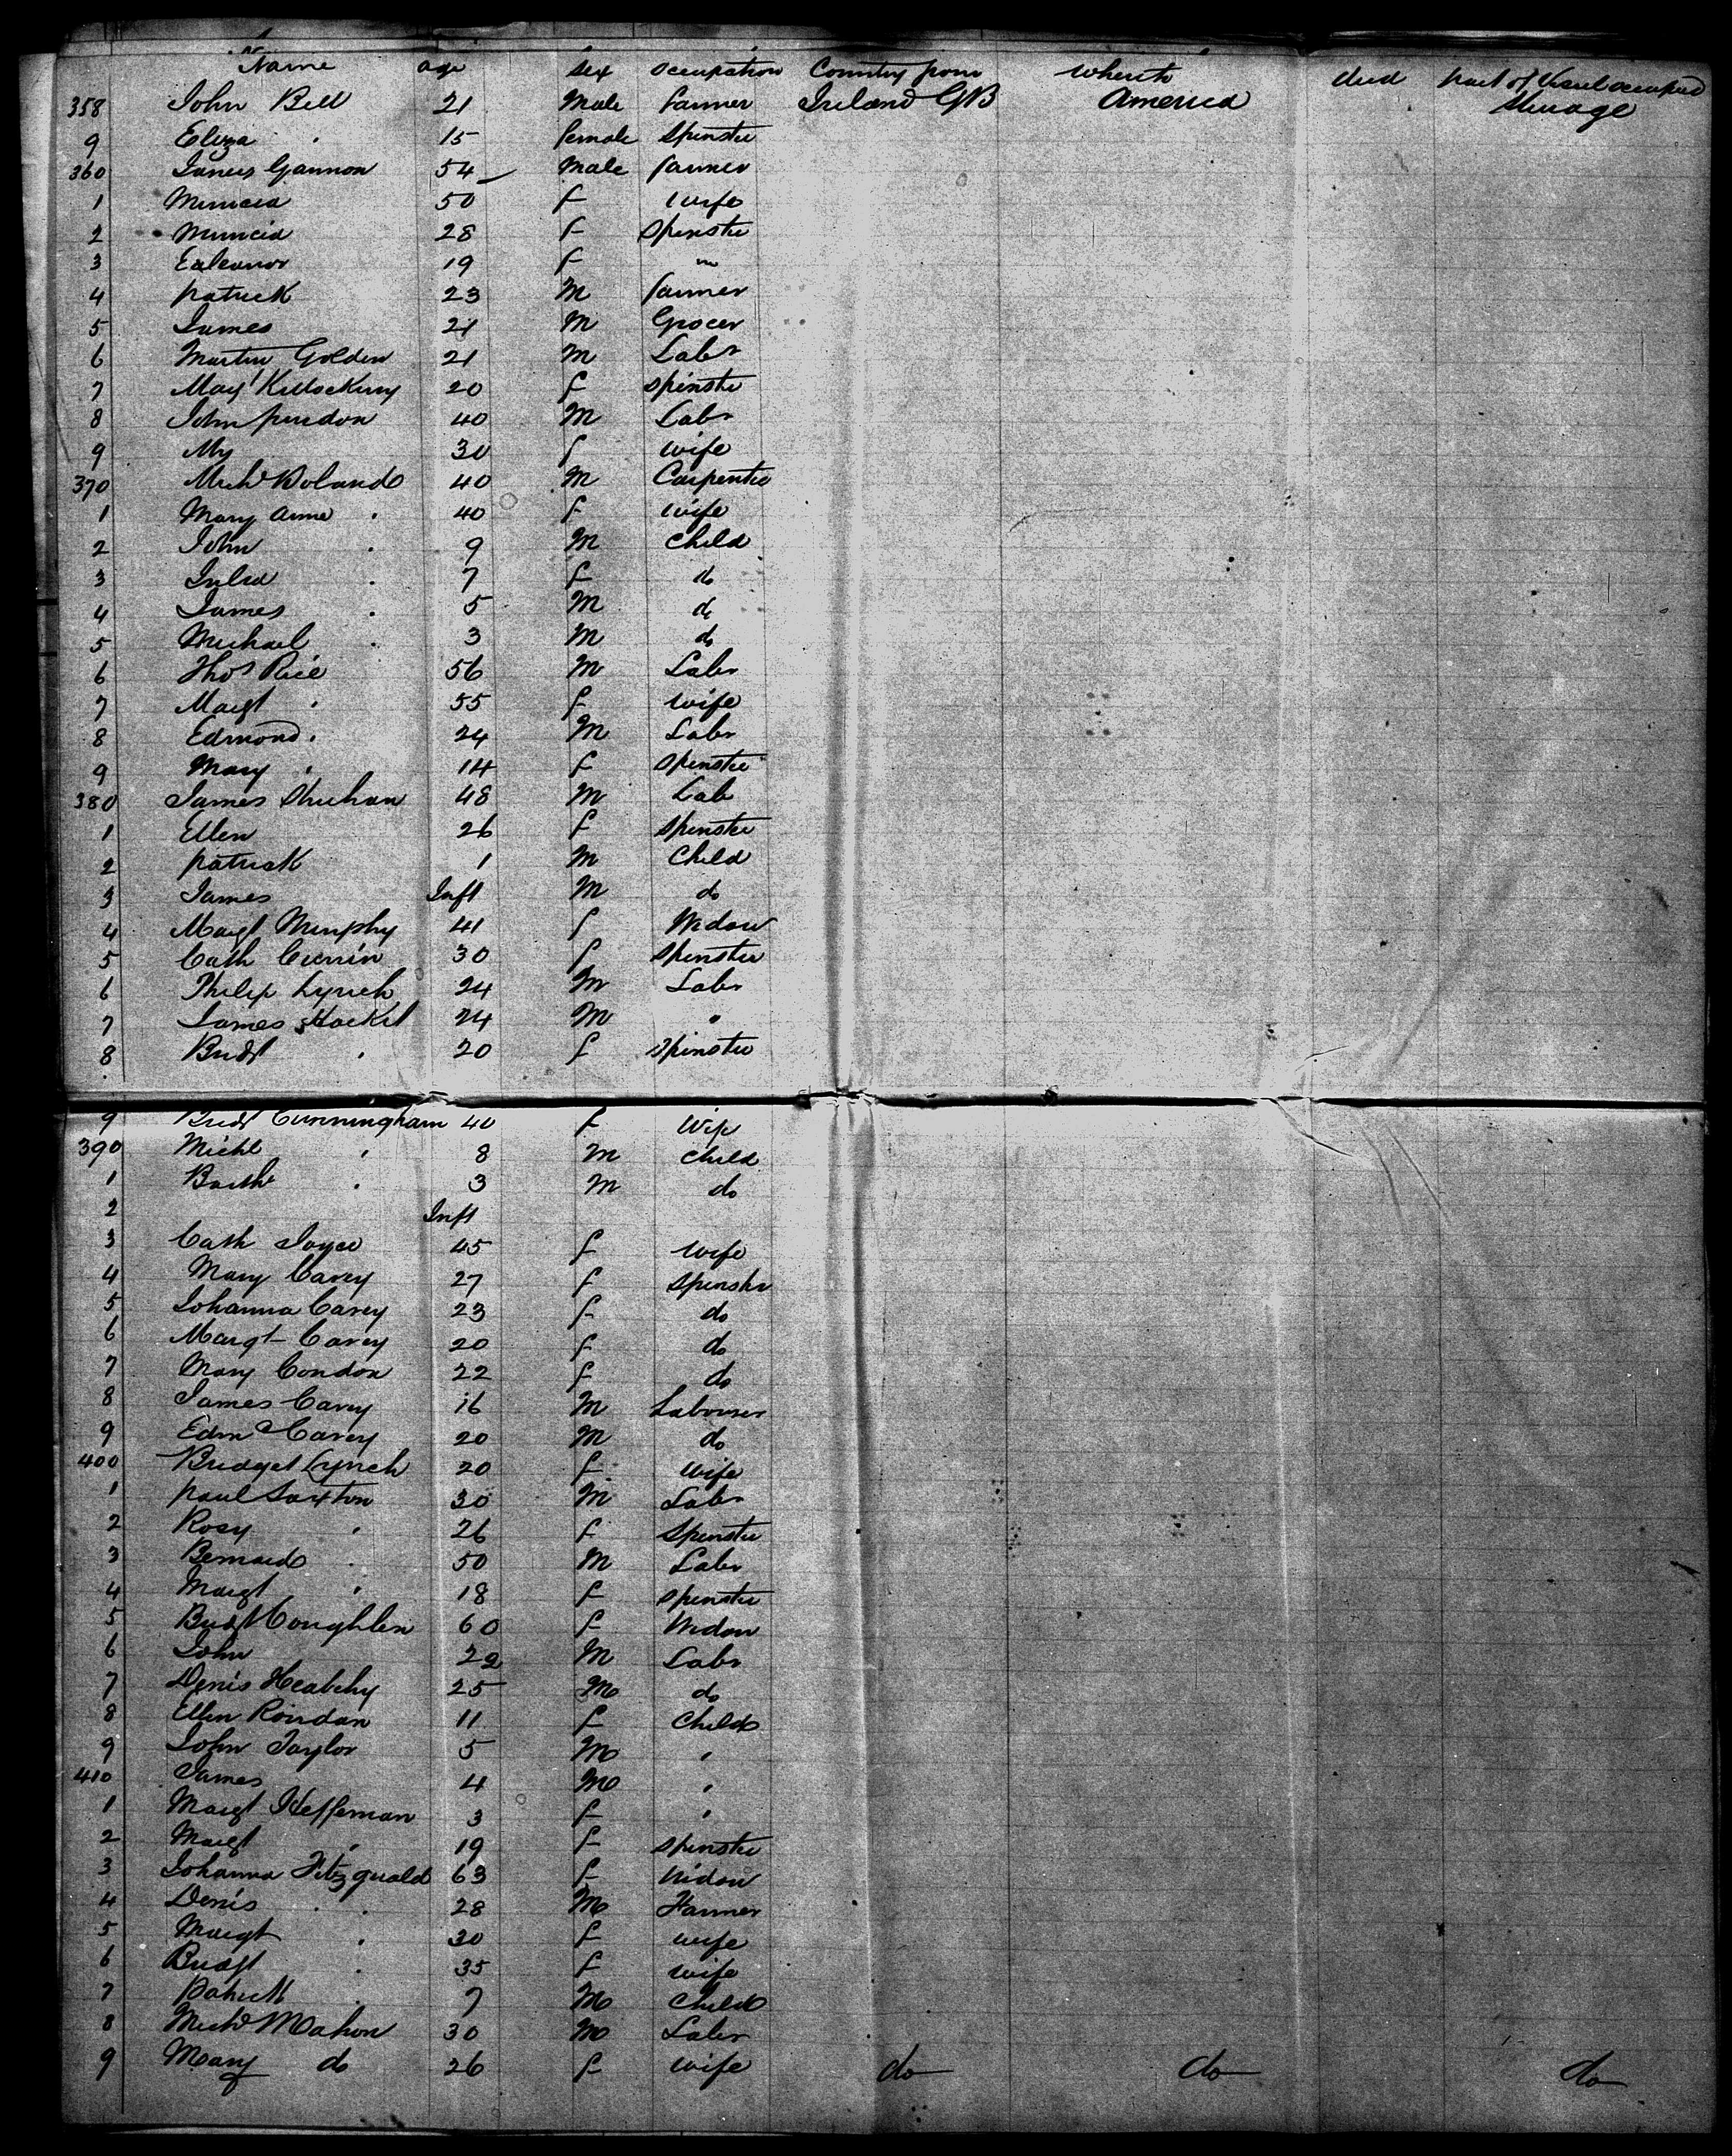 Name age sex occupation Country from where to died part of Vessel occupied
358 John Bell 21 Male farmer Ireland GB America Steerage
9 Eliza " 15 female Spinster
360 James Gannon 54 Male farmer
1 50 f wife
2 28 f Spinster
3 Ealeanor 19 f "
4 patrick 23 M farmer
5 James 21 M Grocer
6 Martin Golden 21 M Labr
7 20 f spinster
8 John 40 M Labr
9 My 30 f wife
370 Michl Boland 40 M Carpenter
1 Mary Anne " 40 f wife
2 John " 9 M Child
3 " 7 f do
4 James " 5 M do
5 Michael " 3 M do
6 Thos Rice 56 M Labr
7 Margt " 55 f wife
8 Edmond " 24 M Labr
9 Mary " 14 f spinster
380 James Shuhan 48 M Lab
1 Ellen 26 f spinster
2 patrick 1 M Child
3 James Inft M do
4 Margt Murphy 41 f Widow
5 Cath 30 f Spinster
6 Philip Lynch 24 M Labr
7 James Hacket 24 M "
8 Bridgt " 20 f spinster
9 Bridgt Cunningham 40 f wife
390 Michl " 8 M Child
1 Barthw " 3 M do
2 Inft
3 Cath Joyce 45 f wife
4 Mary Carey 27 f Spinster
5 Johanna Carey 23 f do
6 Margt Carey 20 f do
7 Mary Condon 22 f do
8 James Carey 16 M Labourer
9 Edm Carey 20 M do
400 Bridget Lynch 20 f wife
1 paul Saxton 30 M Labr
2 Rosy " 26 f Spinster
3 Bernard " 50 M Labr
4 Margt " 18 f spinster
5 Bridgt Coughlen 60 f Widow
6 John 22 M Labr
7 Denis 25 M do
8 Ellen Riordan 11 f Child
9 John Taylor 5 M "
410 James 4 M "
1 Margt Heffernan 3 f "
2 Margt " 19 f spinster
3 Johanna Fitzgerald 63 f Widow
4 Denis " 28 M Farmer
5 Margt " 30 f wife
6 Bridgt " 35 f wife
7 Patrick " 7 M Child
8 Michl Mahon 30 M Labr
9 Mary do 26 f wife do do do